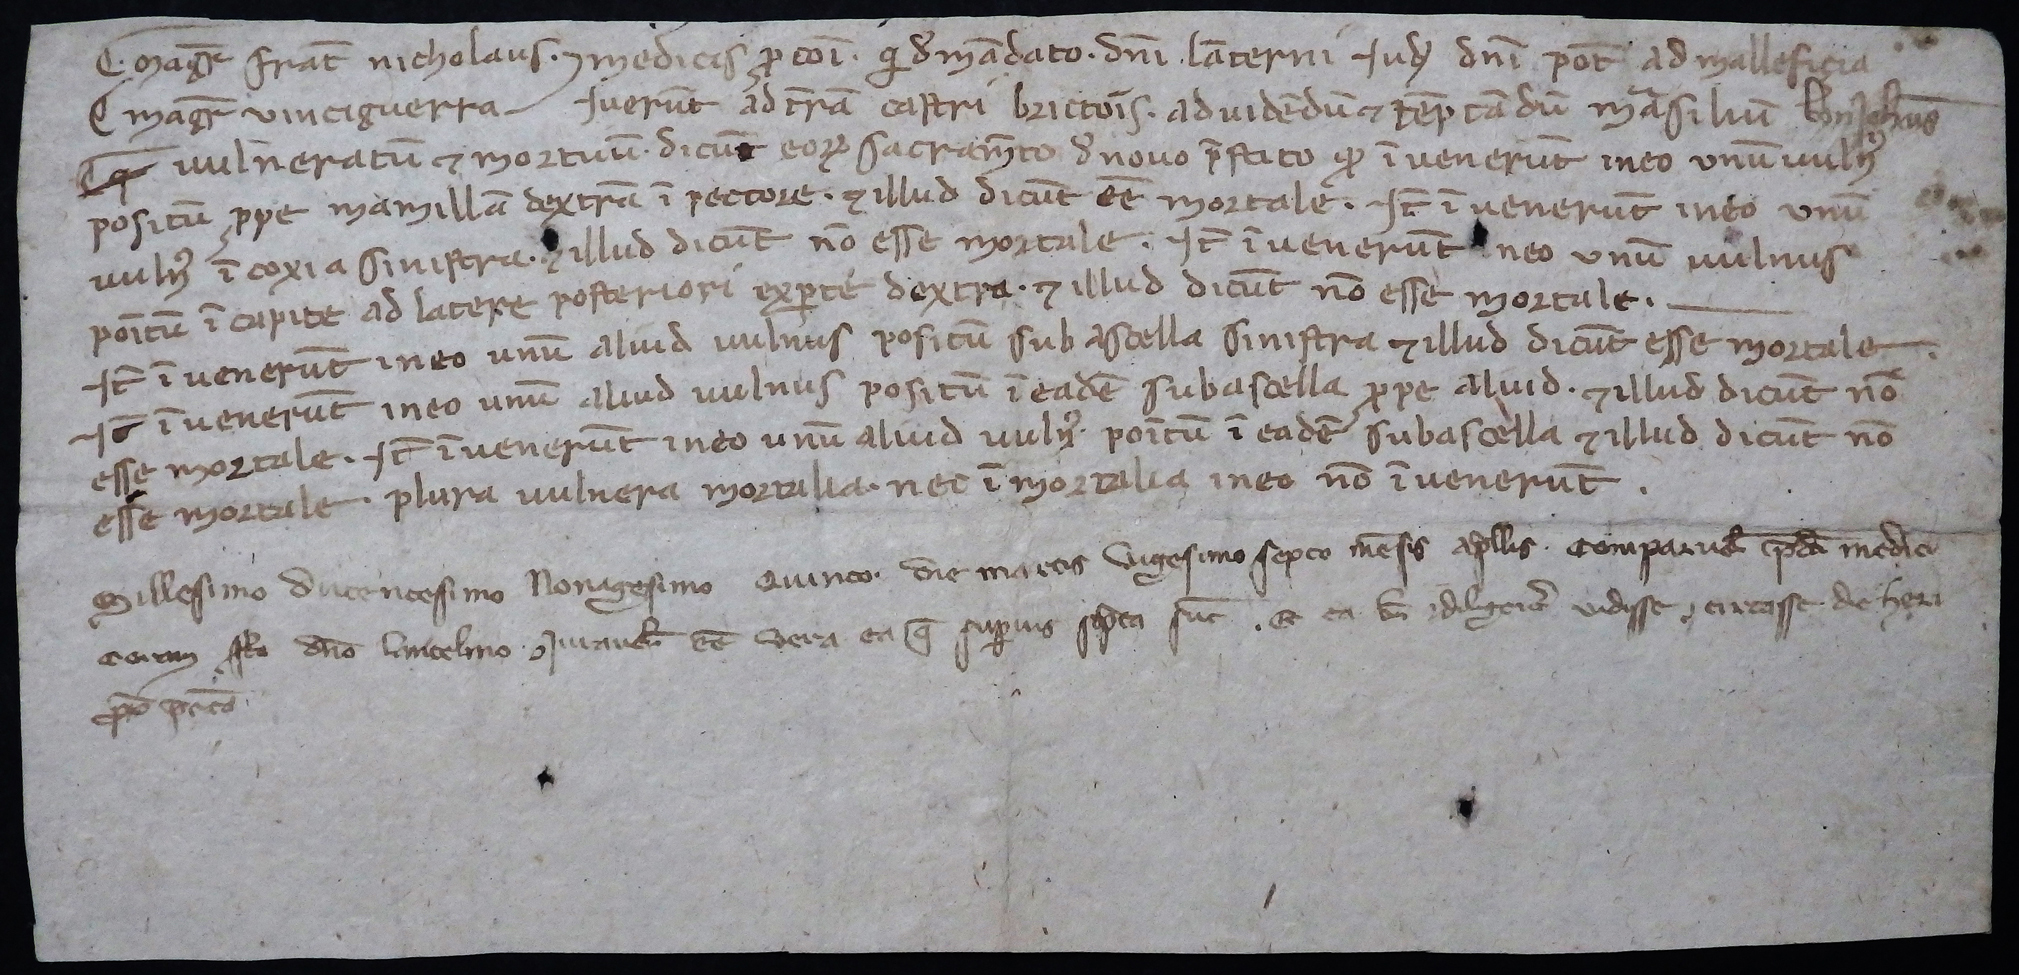 C. magr̄ frat̄ nicholaus. ⁊ medicus ꝑ coī. qi d̓ mādato. dnī. lāterni iud dnī pot̄ ad malleficia
C magr̄ vinciguerra iuerūt ad t̄rā castri brictoīs. ad uidēdū ⁊ tēptādū māsiliū
uulneratū ⁊ mortuū. dicūt eoꝝ sacram̄to d̓ nouo p̄stito ꝙ īuenerūt in eo unū uulnꝰ
positū ꝓpe mamillā dextrā ī pectore. ⁊ illud dicūt eē mortale. It̄ īuenerūt in eo unū
uulnꝰ ī coxia sinistra. ⁊ illud dicūt nō esse mortale. It̄ īuenerūt ineo unū uulnus
poītū ī capite ad latere posteriori ex ꝑte dextra. ⁊ illud dicūt nō esse mortale.
It̄ īuenerūt in eo unū aliud uulnus positū sub ascella sinistra ⁊ illud dicūt esse mortale.
It̄ īuenerūt in eo unū aliud uulnus positū ī eadē subascella ꝓpe aliud. ⁊ illud dicūt nō
esse mortale. It̄ īuenerūt in eo unū aliud uulnꝰ. poītū ī eadē subascella ⁊ illud dicūt nō
esse mortale. plura uulnera mortalia. nec īmortalia in eo nō īuenerūt.
Millesimo ducentesimo Nonagesimo Quinto. die martis vigesimo septo mēsis apllis. Comparuer̄ p̄dc̄i medici
coram dn̄o lancelino. ⁊ iurauer̄ eē vera ea q̄ suꝑius sc̄pta sūt. Et ea diligēt̄ vidisse ⁊ circasse de heri